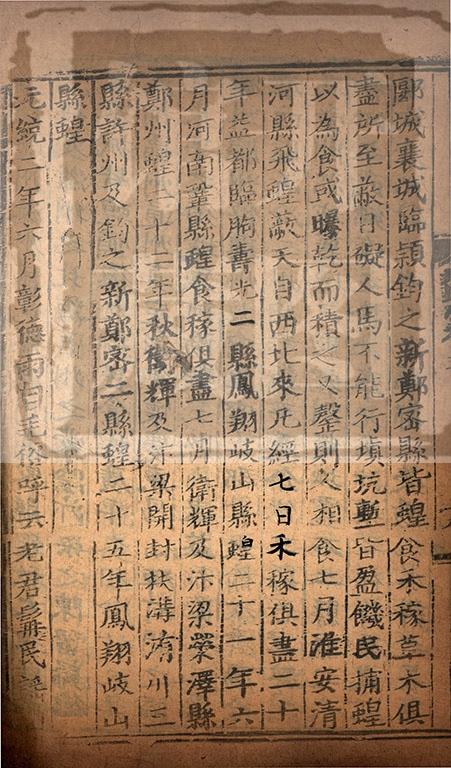 郾城襄城臨潁鈞之新鄭密縣皆蝗食禾稼草木俱
盡所至蔽日礙人馬不能行填坑塹皆盈饑民捕蝗
以為食或曝乾而積之又罄則人相食七月淮安清
河縣飛蝗蔽天自西北來凡經七日禾稼俱盡二十
年益都臨朐壽光二縣鳳翔岐山縣蝗二十一年六
月河南鞏縣蝗食稼俱盡七月衛輝及汴梁滎澤縣
鄭州蝗二十二年秋衛輝及汴梁開封扶溝洧川三
縣許州及鈞之新鄭密二縣蝗二十五年鳳翔岐山
縣蝗
元統二年六月彰德雨白毛俗呼云老君髯民謠